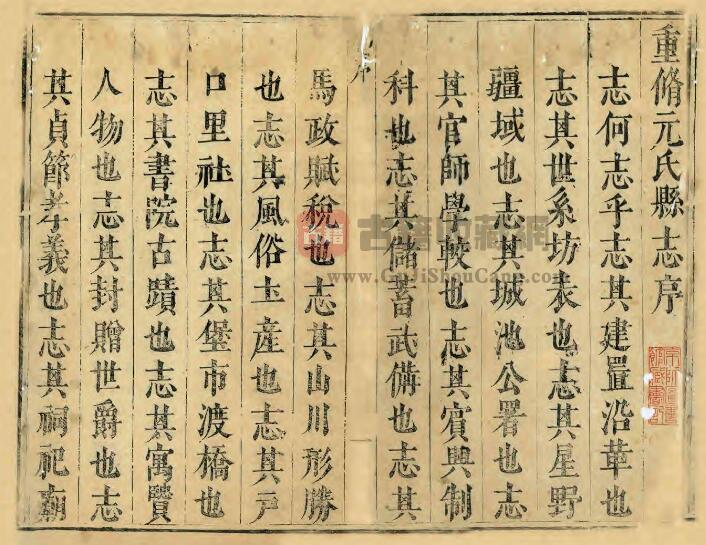 重脩元氏縣志序
志何志乎志其建置沿革也
志其世系坊表也志其星野
疆域也志其城池公署也志
其官師學較也志其賓興制
科也志其儲蓄武備也志其
序
馬政賦稅也志其山川形勝
也志其風俗土産也志其戸
口里社也志其堡市渡橋也
志其書院古蹟也志其寓賢
人物也志其封贈世爵也志
其貞節孝義也志其祠祀廟
古籍收藏網
www.GuJiShouCang.com